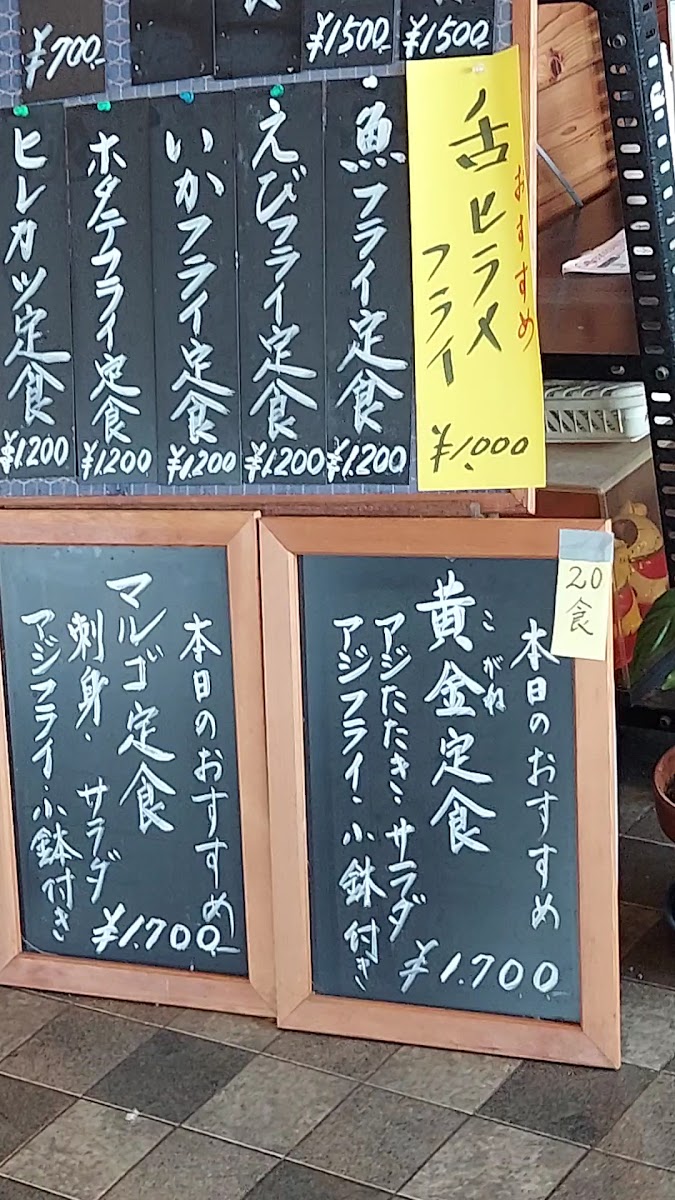 ¥1500
¥1500
¥700
おすすめ
舌ヒラメ
フライ
¥1,000
魚フライ定食
¥1.200
えびフライ定食
¥1200
いかフライ定食
¥1.200
ホタテフライ定食
¥1200
ヒレカツ定食
¥1.200
20食
本日のおすすめ
黄金定食
こがね
アジたたき・サラダ
アジフライ・小鉢付き
¥1.700
本日のおすすめ
マルゴ定食
刺身・サラダ
アジフライ・小鉢付き
¥1.700